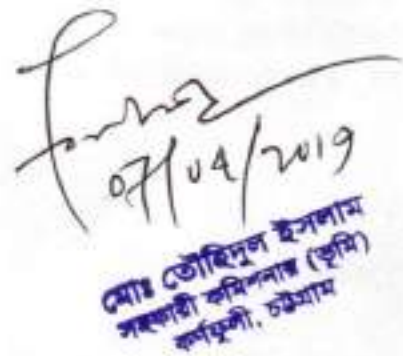 07/04/2019
মোঃ তৌহিদুল ইসলাম
সহকারী কমিশনার (ভূমি)
কর্ণফুলী, চট্টগ্রাম